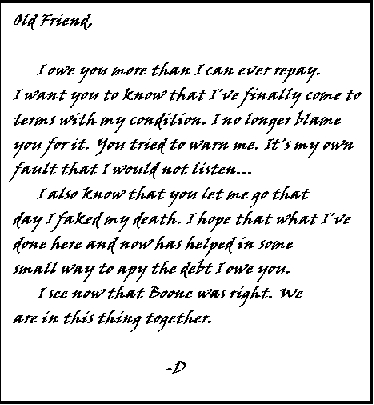 Old Friend,
I owe you more than I can ever repay.
I want you to know that I've finally come to
terms with my condition. I no longer blame
you for it. You tried to warn me. It's my own
fault that I would not listen...
I also know that you let me go that
day I faked my death. I hope that what I've
done here and now has helped in some
small way to apy the debt I owe you.
I see now that Boone was right. We
are in this thing together.
-D